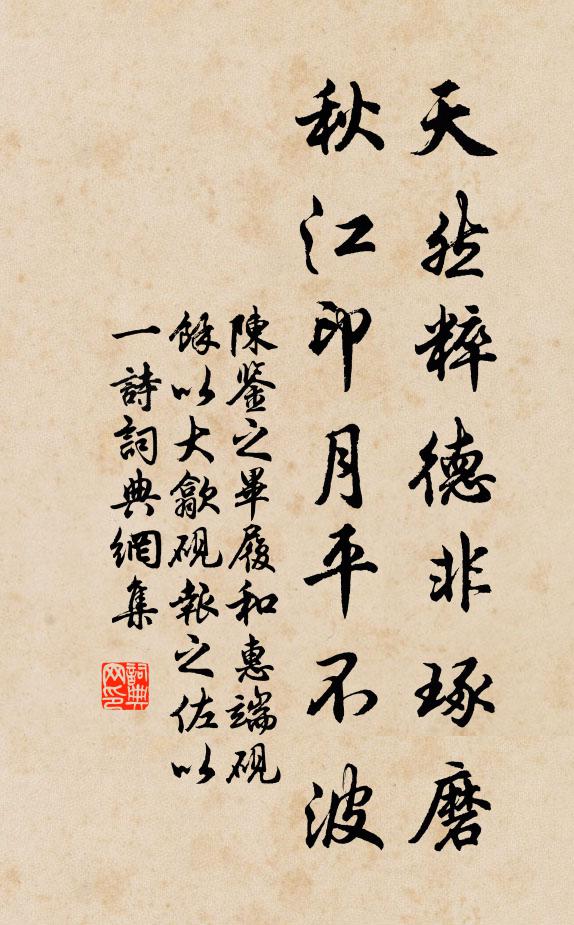 天然粹德非琢磨
秋江印月平不波
陳鑒之畢履和惠端硯
餘以大歙硯報之佐以
一詩詞典網集
詞典
网印